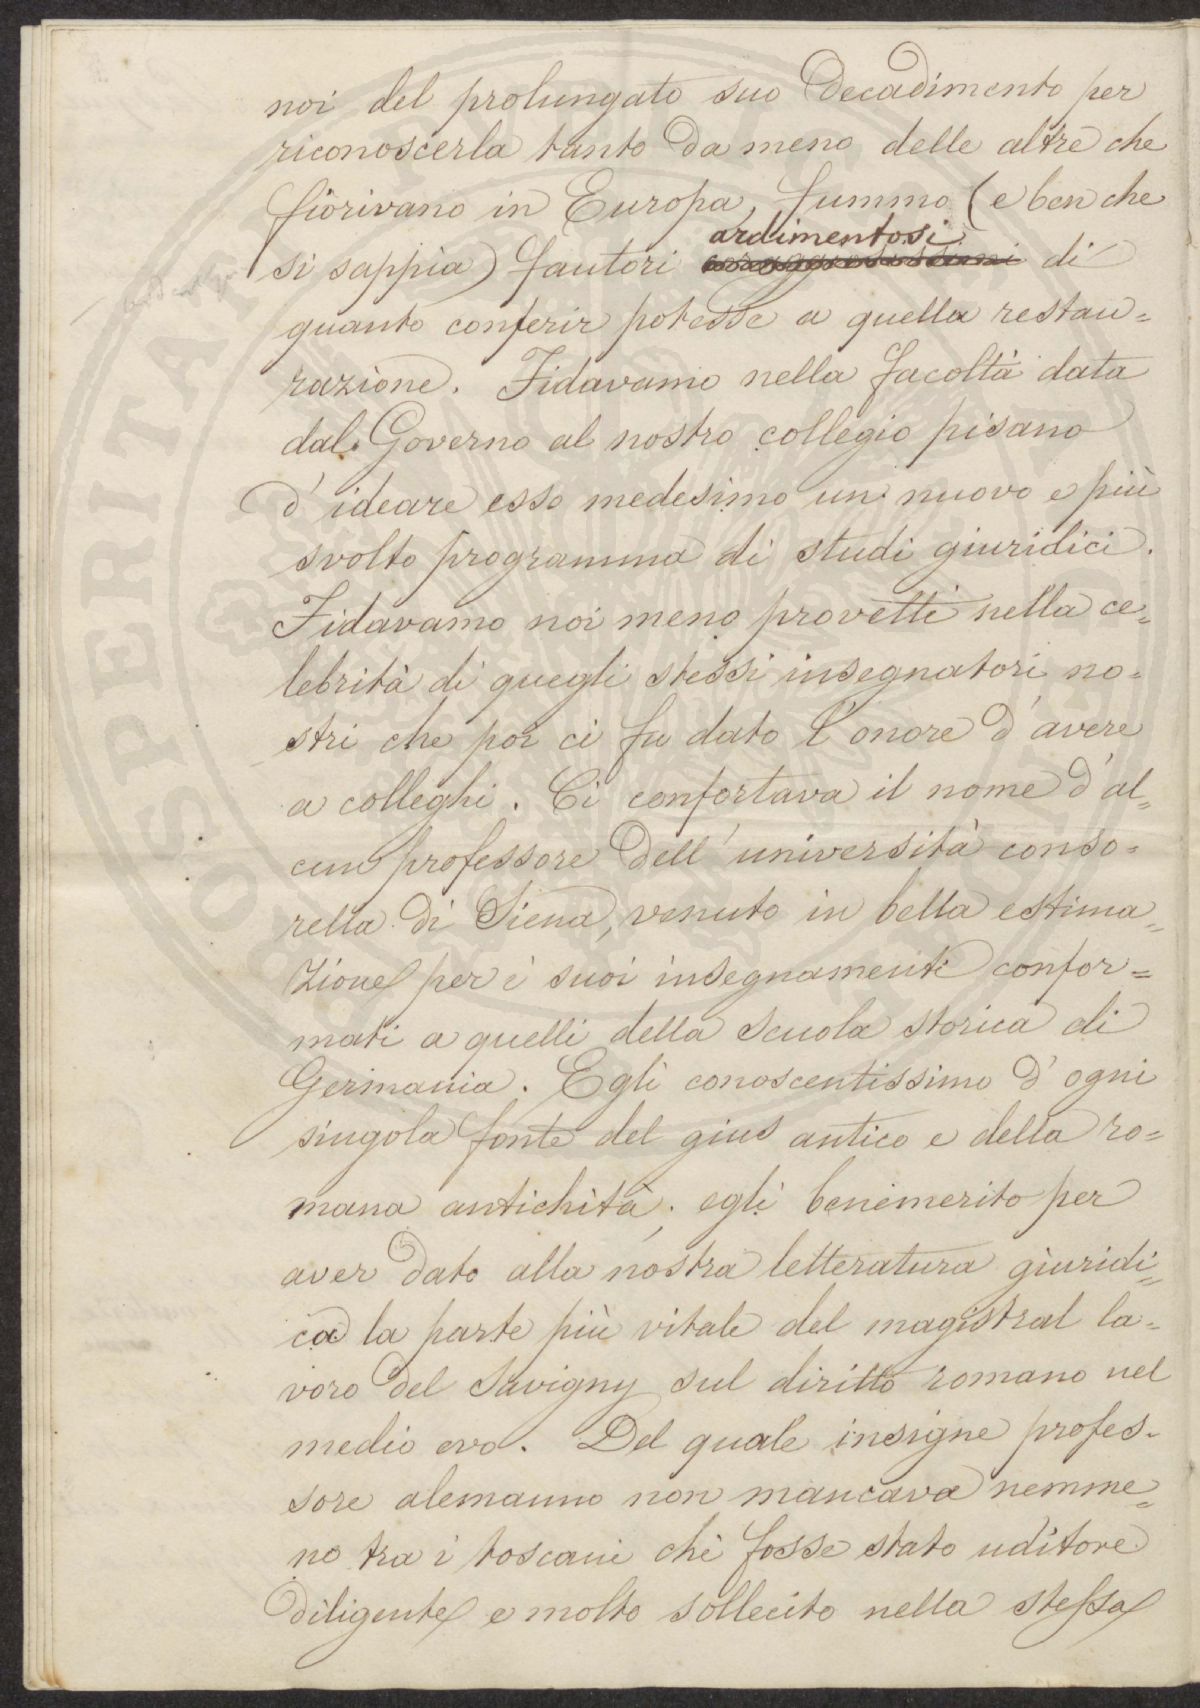 noi del prolungato suo decadimento per
riconoscerla tanto da meno delle altre che
fiorivano in Europa, fummo (e ben che
si sappia) fautori ardimentosi di
quanto conferir potesse a quella restau=
razione. Fidavamo nella facoltà data
dal Governo al nostro collegio pisano
d'ideare esso medesimo un nuovo e più
svolto programma di studi giuridici.
Fidavamo noi meno provetti nella ce=
lebrità di quegli stessi insegnatori no=
stri che poi ci fu dato l'onore d'avere
a colleghi. Ci confortava il nome d'al=
cun professore dell'università conso=
rella di Siena, venuto in bella estima=
zione per i suoi insegnamenti confor=
mati a quelli della scuola storica di
Germania. Egli conoscentissimo d'ogni
singola fonte del gius antico e della ro=
mana antichità; egli benemerito per
aver dato alla nostra letteratura giuridi=
ca la parte più vitale del magistral la=
voro del Savigny sul diritto romano nel
medio evo. Del quale insigne profes=
sore alemanno non mancava nemme=
no tra i toscani chi fosse stato uditore
diligente e molto sollecito nella stessa